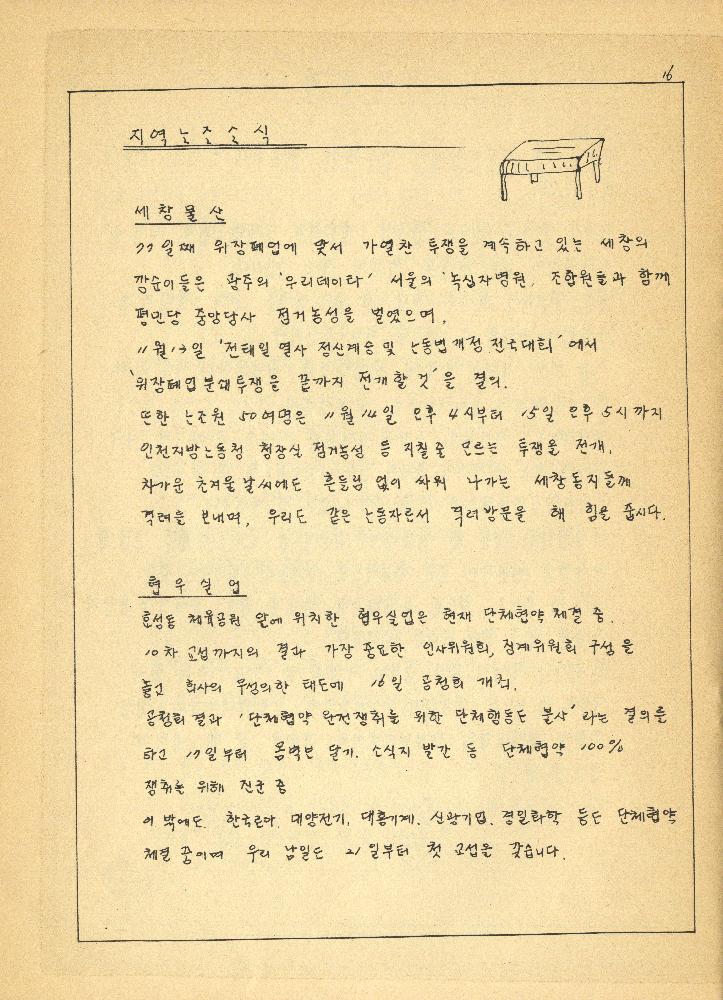 16
지역노조소식
세창물산
77일째 위장폐업에 맞서 가열찬 투쟁을 계속하고 있는 세창의
깡순이들은 광주의 '우리데이타' 서울의 '녹십자병원, 조합원들과 함께
평민당 중앙당사 점거농성을 벌였으며,
11월 13일 '전태일 열사 정신계승 및 노동법개정 전국대회'에서
'위장폐업분쇄투쟁을 끝까지 전개할 것'을 결의.
또한 노조원 50여명은 11월 14일 오후 4시부터 15일 오후 5시까지
인천지방노동청 청장실 점거농성 등 지칠줄 모르는 투쟁을 전개.
차가운 초겨울 날씨에도 흔들림 없이 싸워 나가는 세창동지들께
격려를 보내며, 우리도 같은 노동자로서 격려방문을 해 힘을 줍시다.
협우실업
효성동 체육공원 앞에 위치한 협우실업은 현재 단체협약 체결 중.
10차 교섭까지의 결과 가장 중요한 인사위원회, 징계위원회 구성을
놓고 회사의 무성의한 태도에 16일 공청회 개최.
공청회 결과 '단체협약 완전쟁취를 위한 단체행동도 불사'라는 결의를
하고 17일부터 몸벽보 달기. 소식지 발간 등 단체협약 100%
쟁취를 위해 진군 중
이 밖에도 한국론아, 대양전기, 대흥기계. 신광기업. 경일화학 등도 단체협약
체결 중이며 우리 남일도 21일부터 첫 교섭을 갖습니다.